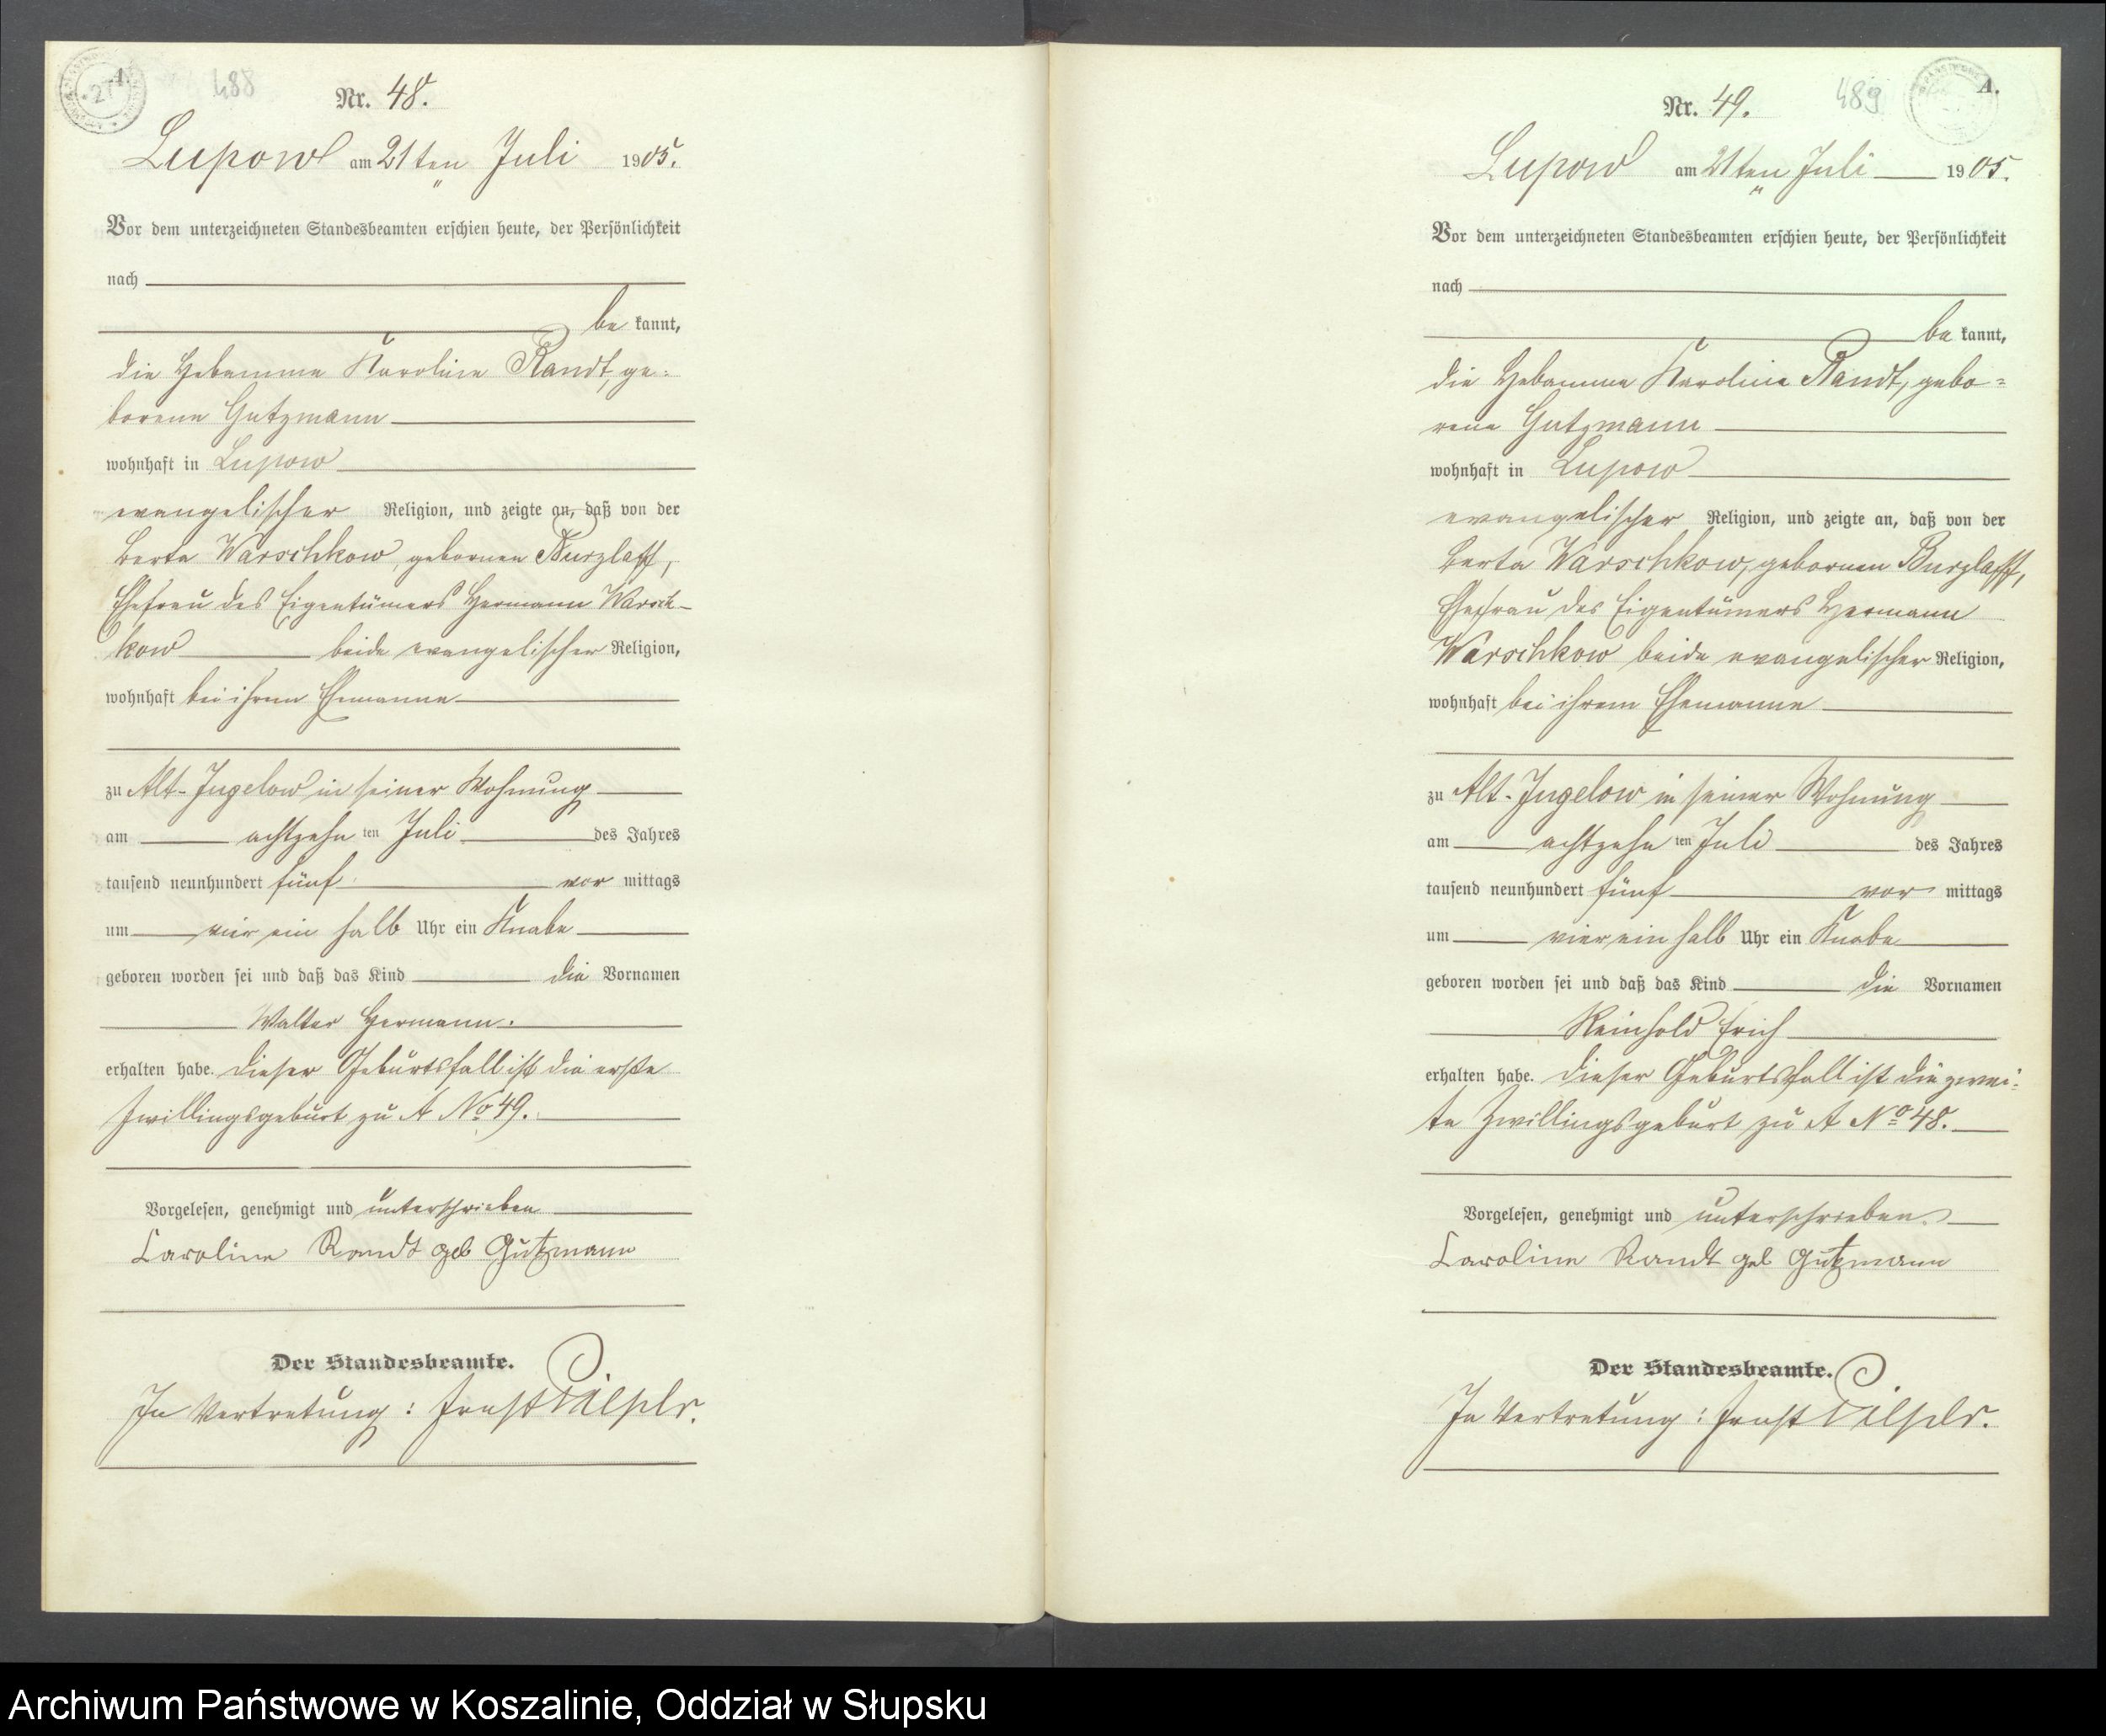 A.
27
488
Nr. 48.
Lupow am 21ten Juli 1905.
Vor dem unterzeichneten Standesbeamten erschien heute, der Persönlichkeit
nach
be kannt,
die Hebamme Karoline Randt, ge-
borene Gutzmann
wohnhaft in Lupow
evangelischer Religion, und zeigte an, daß von der
Berta Warschkow, geborenen Burzlaff,
Ehefrau des Eigentümers Hermann Warsch-
kow beide evangelischer Religion,
wohnhaft bei ihrem Ehemanne
zu Alt-Jugelow in seiner Wohnung
am achtzehn ten Juli des Jahres
tausend neunhundert fünf vor mittags
um vier ein halb Uhr ein Knabe
geboren worden sei und daß das Kind die Vornamen
Walter Hermann.
erhalten habe. Dieser Geburtsfall ist die erste
Zwillingsgeburt zu A No 49.
Vorgelesen, genehmigt und unterschrieben
Caroline Randt geb Gützmann
Der Standesbeamte.
In Vertretung: Ernst
489
A.
Nr. 49.
Lupow am 21ten Juli 1905.
Vor dem unterzeichneten Standesbeamten erschien heute, der Persönlichkeit
nach
be kannt,
die Hebamme Karoline Randt, gebo-
rene Gutzmann
wohnhaft in Lupow
evangelischer Religion, und zeigte an, daß von der
Berta Warschkow, geborenen Burzlaff,
Ehefrau des Eigentümers Hermann
Warschkow beide evangelischer Religion,
wohnhaft bei ihrem Ehemanne
zu Alt-Jugelow in seiner Wohnung
am achtzehn ten Juli des Jahres
tausend neunhundert fünf vor mittags
um vier ein halb Uhr ein Knabe
geboren worden sei und daß das Kind die Vornamen
Reinhold Erich
erhalten habe. Dieser Geburtsfall ist die zwei-
te Zwillingsgeburt zu A No 48.
Vorgelesen, genehmigt und unterschrieben.
Caroline Randt geb Gützmann
Der Standesbeamte.
In Vertretung: Ernst
Archiwum Państwowe w Koszalinie, Oddział w Słupsku